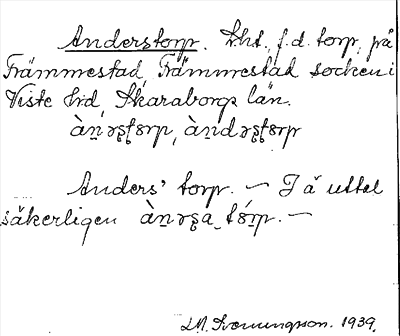 Anderstorp. Lht, f.d. torp, på
Främmestad, Främmestad socken i
Viste hd, Skaraborgs län.
àn̠ɘʂʈɞrp, àndɘʂʈɞrp
Anders' torp. — I ä. uttal
säkerligen àn̠ɘʂa tɞ́rp. —
1939.